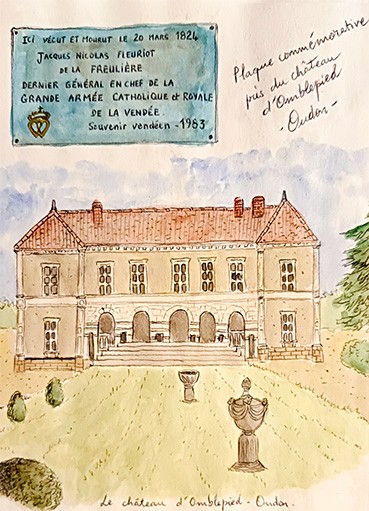 Ici vécut et mourut le 20 mars 1824
Jacques Nicolas Fleuriot
de la Freulière
dernier général en chef de la
Grande Armée Catholique et Royale
de la Vendée
Souvenir vendéen - 1983
Plaque commémorative
près du château
d'Omblepied
- Oudon -
Le château d'Omblepied - Oudon.